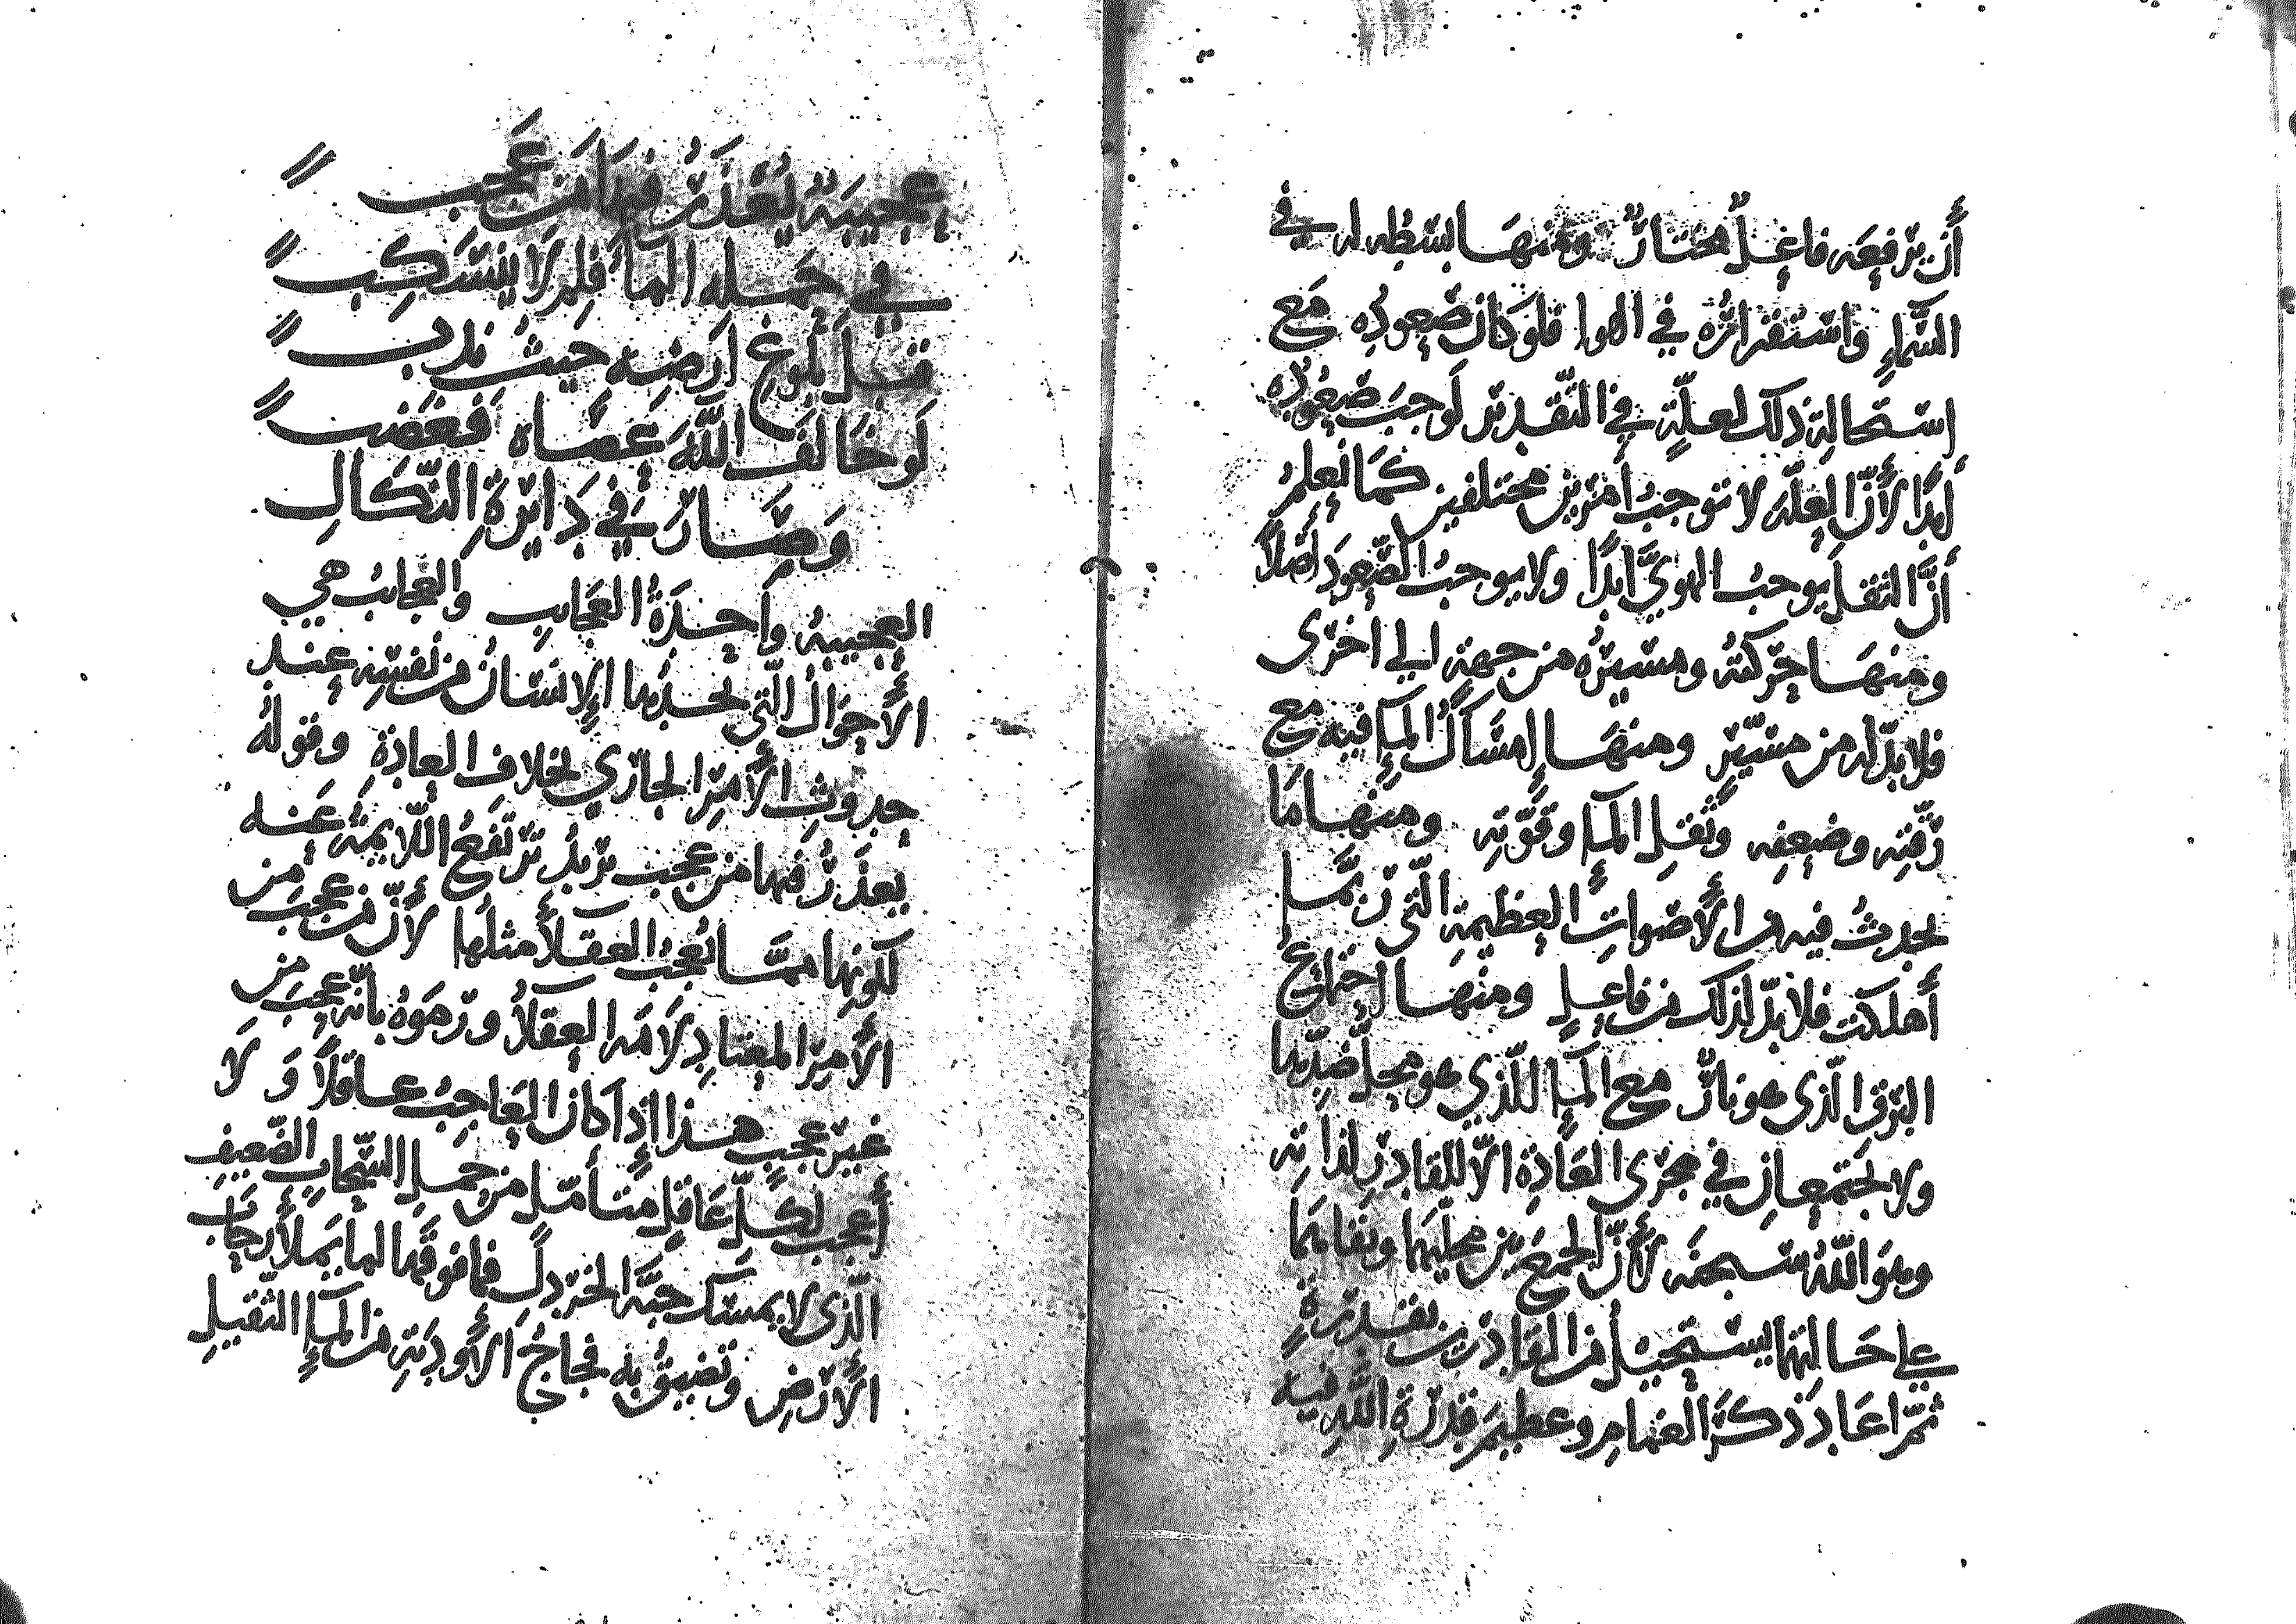 أن يرفعه فاعل مختار ومنها بسطه له في
السماء واستقراره في الهوا فلو كان صعوده مع
استحالة ذلك لعلة في التقدير لوجب صعوده
أبدا لأن العلة لا توجب أمرين مختلفين كما نعلم
أن الثقل يوجب الهوي ابدا ولا يوجب الصعود أصلا
ومنها حركته ومسيره من جهة الى اخرى
فلا بد له من مسير ومنها إمساك المآء فيه مع
رقته وضعفه وثقل المآء وقوته ومنها ما
يحدث فيه من الأصوات العظيمة التي ربما
أهلكت فلا بد لذلك من فاعل ومنها اجتماع
البرق الذى هو نار مع المآء اللذي هو محل ضدها
ولا يجتمعان في مجرى العادة الا للقادر لذاته
وهو الله سبحنه لأن الجمع بين محليهما وبقاهما
على حالتهما يستحيل من القادرين بقدرة
ثم اعاد ذكر الغمام وعظيم قدرة الله فيه
عجيبة يعذر فيها من عجب
في حمله الماء فلم لا ينسكب
قبل بلوغ ارضه حيث ندب
لو خالف الله عصاه فغضب
وصار في دايرة النكال
العجيبة واحدة العجايب والعجائب هي
الأحوال التي يجدها الإنسان من نفسه عند
حدوث الأمر الجاري بخلاف العادة وقوله
يعذر فيها من عجب يريد ترتفع اللايمة عنه
لكونها مما يعجب العقلآء مثلها لأن من عجب من
الأمر المعتاد لامه العقلآء ورموه بأنه عجب من
غير عجب هذا إذا كان العاجب عاقلا و لا
أعجب لكل عاقل متأمل من حمل السحاب الضعيف
الذى لا يمسك حبة الخردل فما فوقها لما يملأ رحاب
الأرض وتضيق به فجاج الأودية من المآء الثقيل